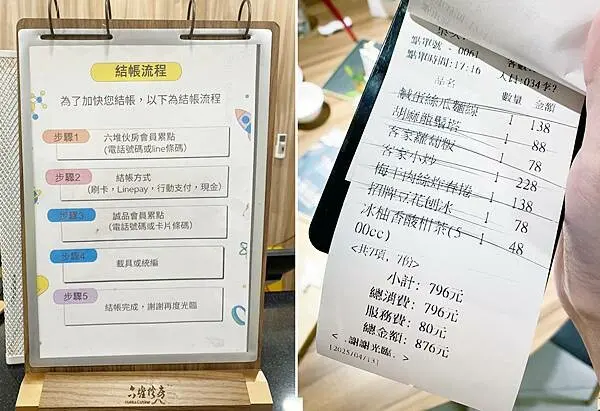 結帳流程
為了加快您結帳，以下為結帳流程
步驟1
六堆伙房會員累點
(電話號碼或line條碼)
步驟2
結帳方式
(刷卡，Linepay，行動支付，現金)
步驟3
誠品會員累點
(電話號碼或卡片條碼)
步驟4
載具或統編
步驟5
結帳完成，謝謝再度光臨
六堆伙房
Hakka Cuisine
點單號 - 0061
點單時間:17:16
人員:034李?
品名 數量 金額
鹹蛋絲瓜麵線 1 138
1 88
客家蘿蔔粄 1 78
客家小炒 1 228
梅干肉絲炸春捲 1 138
招牌豆花刨冰 1 78
冰柚香酸柑茶(5 1 48
00cc)
<共7項, 7份>
小計: 796元
總消費: 796元
服務費: 80元
總金額: 876元
< .謝謝光臨. >
[2025/04/13]